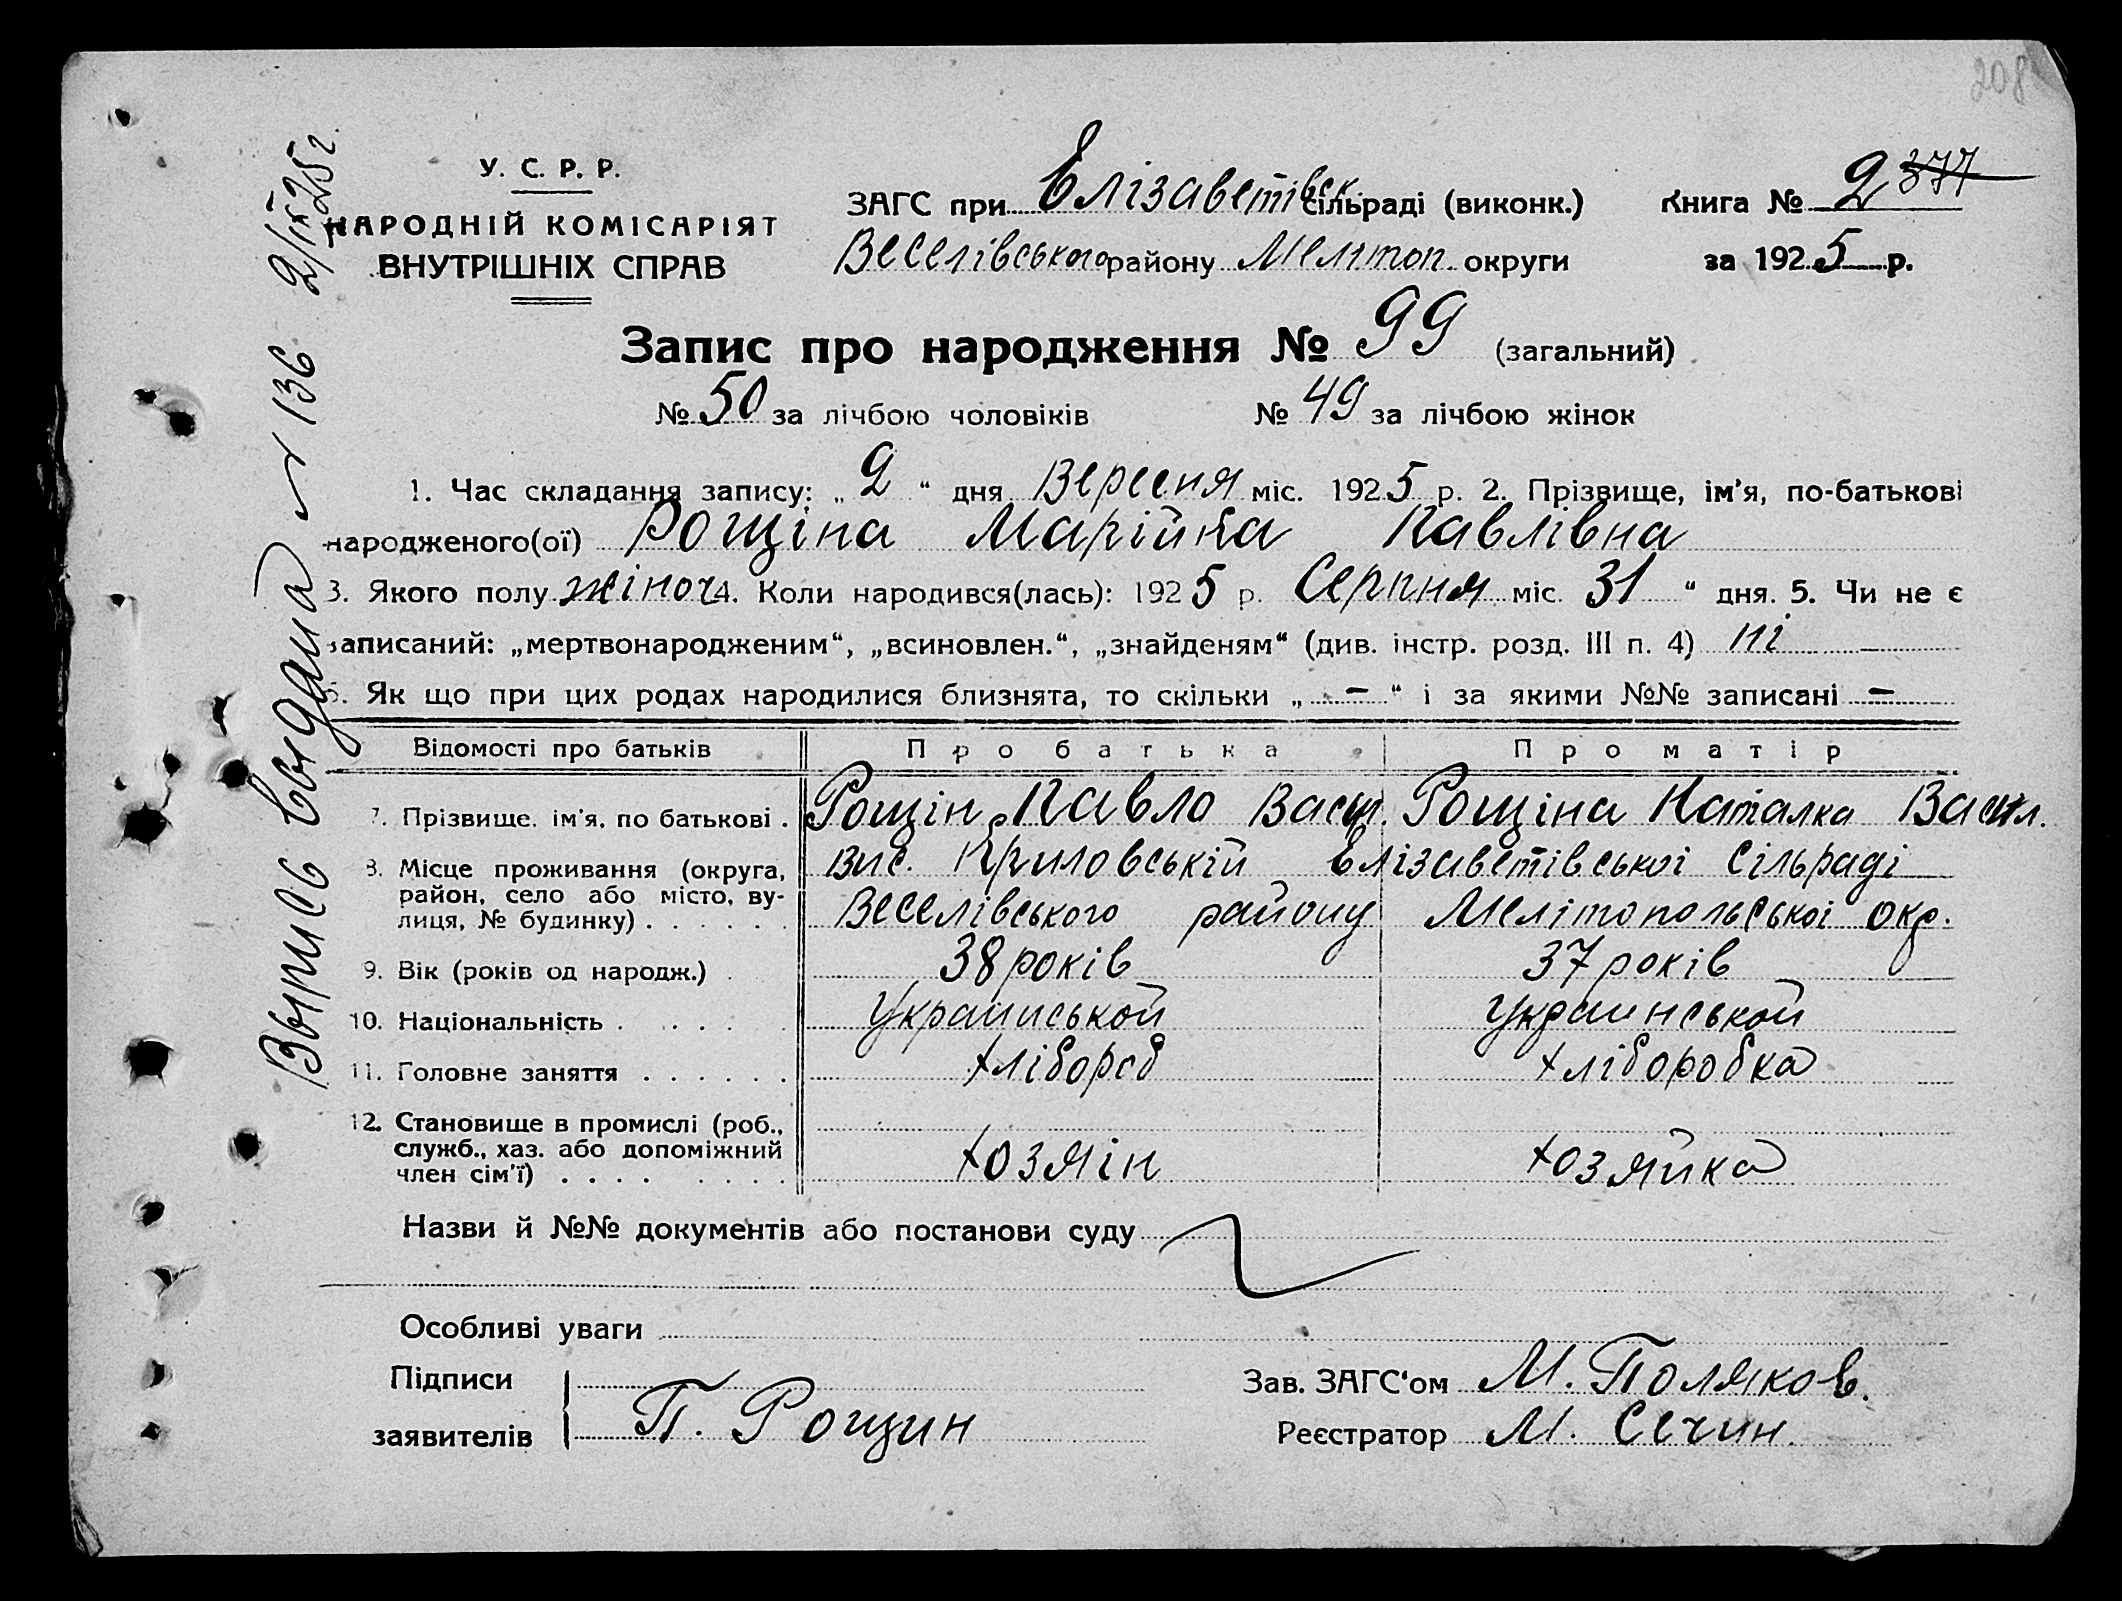 208
У. С. Р. Р.
НАРОДНІЙ КОМІСАРІЯТ
ВНУТРІШНІХ СПРАВ
ЗАГС при Єлізаветівск. сільраді (виконк.)
Веселівського району Мелітоп. округи
Книга № 2 377
за 1925 р.
Запис про народження № 99 (загальний)
№ 50 за лічбою чоловіків № 49 за лічбою жінок
1. Час складання запису: „ 2 “ дня Вересня міс. 1925 р. 2. Прізвище, ім'я, по-батькові
народженого(ої) Рощіна Марійка Павлівна
3. Якого полу жіноч 4. Коли народився(лась): 1925 р. Серпня міс. 31 “ дня. 5. Чи не є
записаний: „мертвонародженим“, „всиновлен.“, „знайденям“ (див. інстр. розд. III п. 4) ні
6. Як що при цих родах народилися близнята, то скільки „ – “ і за якими №№ записані –
Відомості про батьків Про батька Про матір
7. Прізвище, ім'я, по батькові . Рощін Павло Васил. Рощіна Наталка Васил.
8. Місце проживання (округа, район, село або місто, вулиця, № будинку) . . . . . .
Вис. Криловській Єлізаветівської Сільраді
Веселівського району Мелітопольської окр.
9. Вік (років од народж.) . 38 років 37 років
10. Національність . . . . . Украинськой Украинськой
11. Головне заняття . . . . . . хлібороб хлiборобка
12. Становище в промислі (роб.,
служб., хаз. або допоміжний
член сім'ї) . . . . . . . . хозяін хозяйка
Назви й №№ документів або постанови суду
Особливі уваги
Підписи
заявителів П. Рощин
Зав. ЗАГС'ом М. Поляков.
Реєстратор М. Сечин.
Выпись выдана № 136 2/IX 25 г.